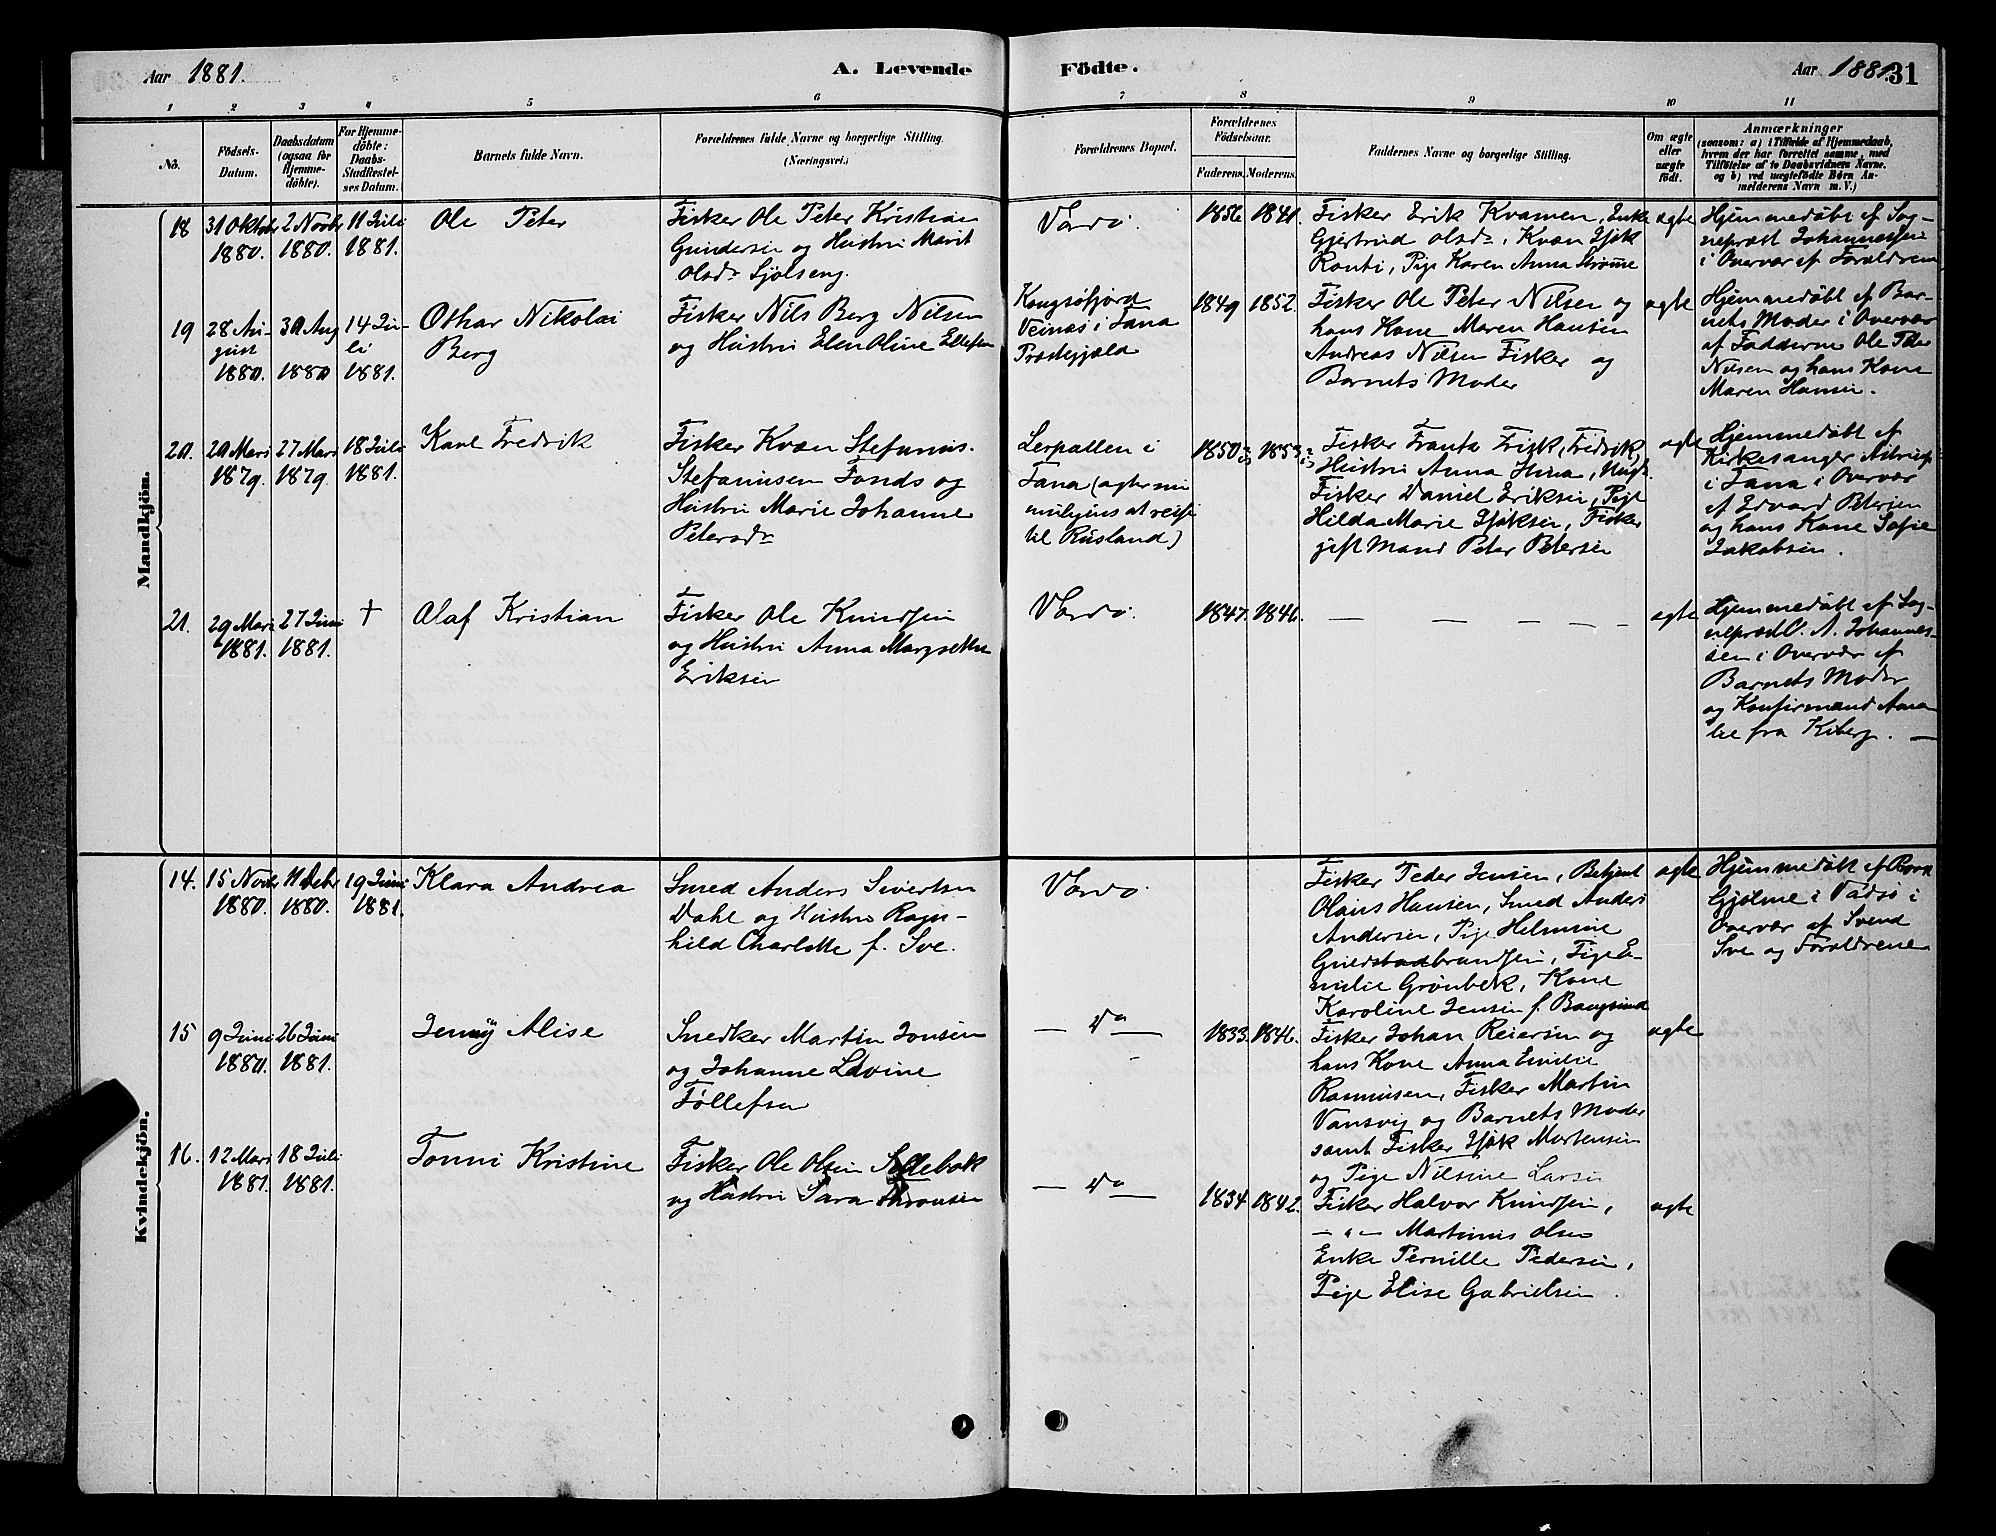 Aar 1881.
A. Levende
Födte.
Aar 1881.
31
1 2 3 4 5 6 7 8 9 10 11
No.
Födsels-
Datum.
Daabsdatum
(ogsaa for
Hjemme-
döbte).
For Hjemme-
döbte:
Daabs-
Stadfæstel-
ses Datum.
Barnets fulde Navn.
Forældrenes fulde Navne og borgerlige Stilling.
(Næringsvei.)
Forældrenes Bopæl.
Forældrenes
Födselsaar.
Faderens. Moderens.
Faddernes Navne og borgerlige Stilling.
Om ægte
eller
uægte
födt.
Anmærkninger
(saasom: a) i Tilfælde af Hjemmedaab,
hvem der har forrettet samme, med
Tilföielse af to Daabsvidners Navne.
og b) ved uægtefödte Börn An-
melderens Navn m. V.)
Mandkjön.
18
31 Oktbr
1880.
2 Novbr
1880.
11 Juli
1881.
Ole Peter
Fisker Ole Peter Kristian
Gundersen og Hustru Marit
Olsdr Sjölseng.
Vardö.
1856 1841.
Fisker Erik Kvamen, Enke
Gjertrud Olsdr, Kvæn Isak
Ronti, Pige Karen Anna Strømme
ægte
Hjemmedøbt af Sog-
neprest Johannessen
i Overvær af Forældrene
19
28 Au-
gust
1880.
30 Aug
1880
14 Ju-
li
1881.
Othar Nikolai
Berg
Fisker Nils Berg Nilsen
og Hustru Elen Oline Ellefsen
Kongsöfjord
Veinæs i Tana
Præstegjæld
1849 1852.
Fisker Ole Peter Nilsen og
hans Kone Maren Hansen
Andreas Nilsen Fisker og
Barnets Moder
ægte
Hjemmedøbt af Bar-
nets Moder i Overvær
af Fadderne Ole Peter
Nilsen og hans Kone
Maren Hansen.
20.
20 Mars
1879.
27 Mars
1879.
18 Juli
1881.
Karl Fredrik
Fisker Kvæn Stefanus
Stefanusen Fonds og
Hustru Marie Johanne
Petersdr
Lerpollen i
Tana (agter mu
muligens at reise
til Rusland)
1850 1853
Fisker Frants Frisk, Fredrik
Hustru Anna
Fisker Daniel Eriksen, Pige
Hilda Marie Isaksen, Fisker
gift Mand Peter Petersen
ægte
Hjemmedøbt af
Kirkesanger Astrup
i Tana i Overvær
af Edvard Petersen
og hans Kone Sofie
Jakobsen.
21.
29 Mars
1881.
27 Juni
1881.
†
Olaf Kristian
Fisker Ole Knudsen
og Hustru Anna Margrethe
Eriksen
Vardö.
1847. 1846.
— — — — —
ægte
Hjemmedøbt af Sog-
neprest O. A. Johannes-
sen i Overvær af
Barnets Moder
og Konfirmand Ama
lie fra Kiberg. —
Kvindekjön.
14.
15 Novbr
1880.
11 Debr
1880.
19 Juni
1881.
Klara Andrea
Smed Anders Sivertsen
Dahl og Hustru Ragn-
hild Charlotte f. Sve.
Vardö.
Fisker Peder Jensen, Betjent
Olaus Hansen, Smed Anders
Andersen, Pige Helmine
Guldbrandsen, Pige E-
milie Grönbek, Kone
Karoline Jensen f. Bangsund
ægte
Hjemmedøbt af
Gjölme i Vadsö i
Overvær af Svend
Sve og Forældrene
15
9 Juni
1880.
26 Juni
1881.
Jenny Alise
Snedker Martin Jonsen
og Johanne Lovine
Tollefsen
— Do —
1833. 1846.
Fisker Johan Reiersen og
hans Kone Anna Emilie
Rasmusen, Fisker Martin
Vansvig og Barnets Moder
samt Fisker Isak Mortensen
og Pige Nilsine Larsen
ægte
16.
12 Mars
1881.
18 Juli
1881.
Tonni Kristine
Fisker Ole Olsen Sollebak
og Hustru Sara Thronsen
— Do —
1834 1842.
Fisker Halvor Knudsen,
— " — Martinus Olsen
Enke Pernille Pedersen,
Pige Elise Gabrielsen.
ægte